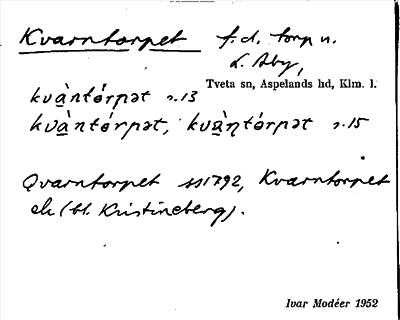 Kvarntorpet f.d. torp u.
L. Aby,
Tveta sn, Aspelands hd, Klm. l.
kvàntórpət s.13
kvàntórpət, kvàṇtórpət s.15
Qvarntorpet ss1792, Kvarntorpet
ek (bl. Kristineberg).
Ivar Modéer 1952